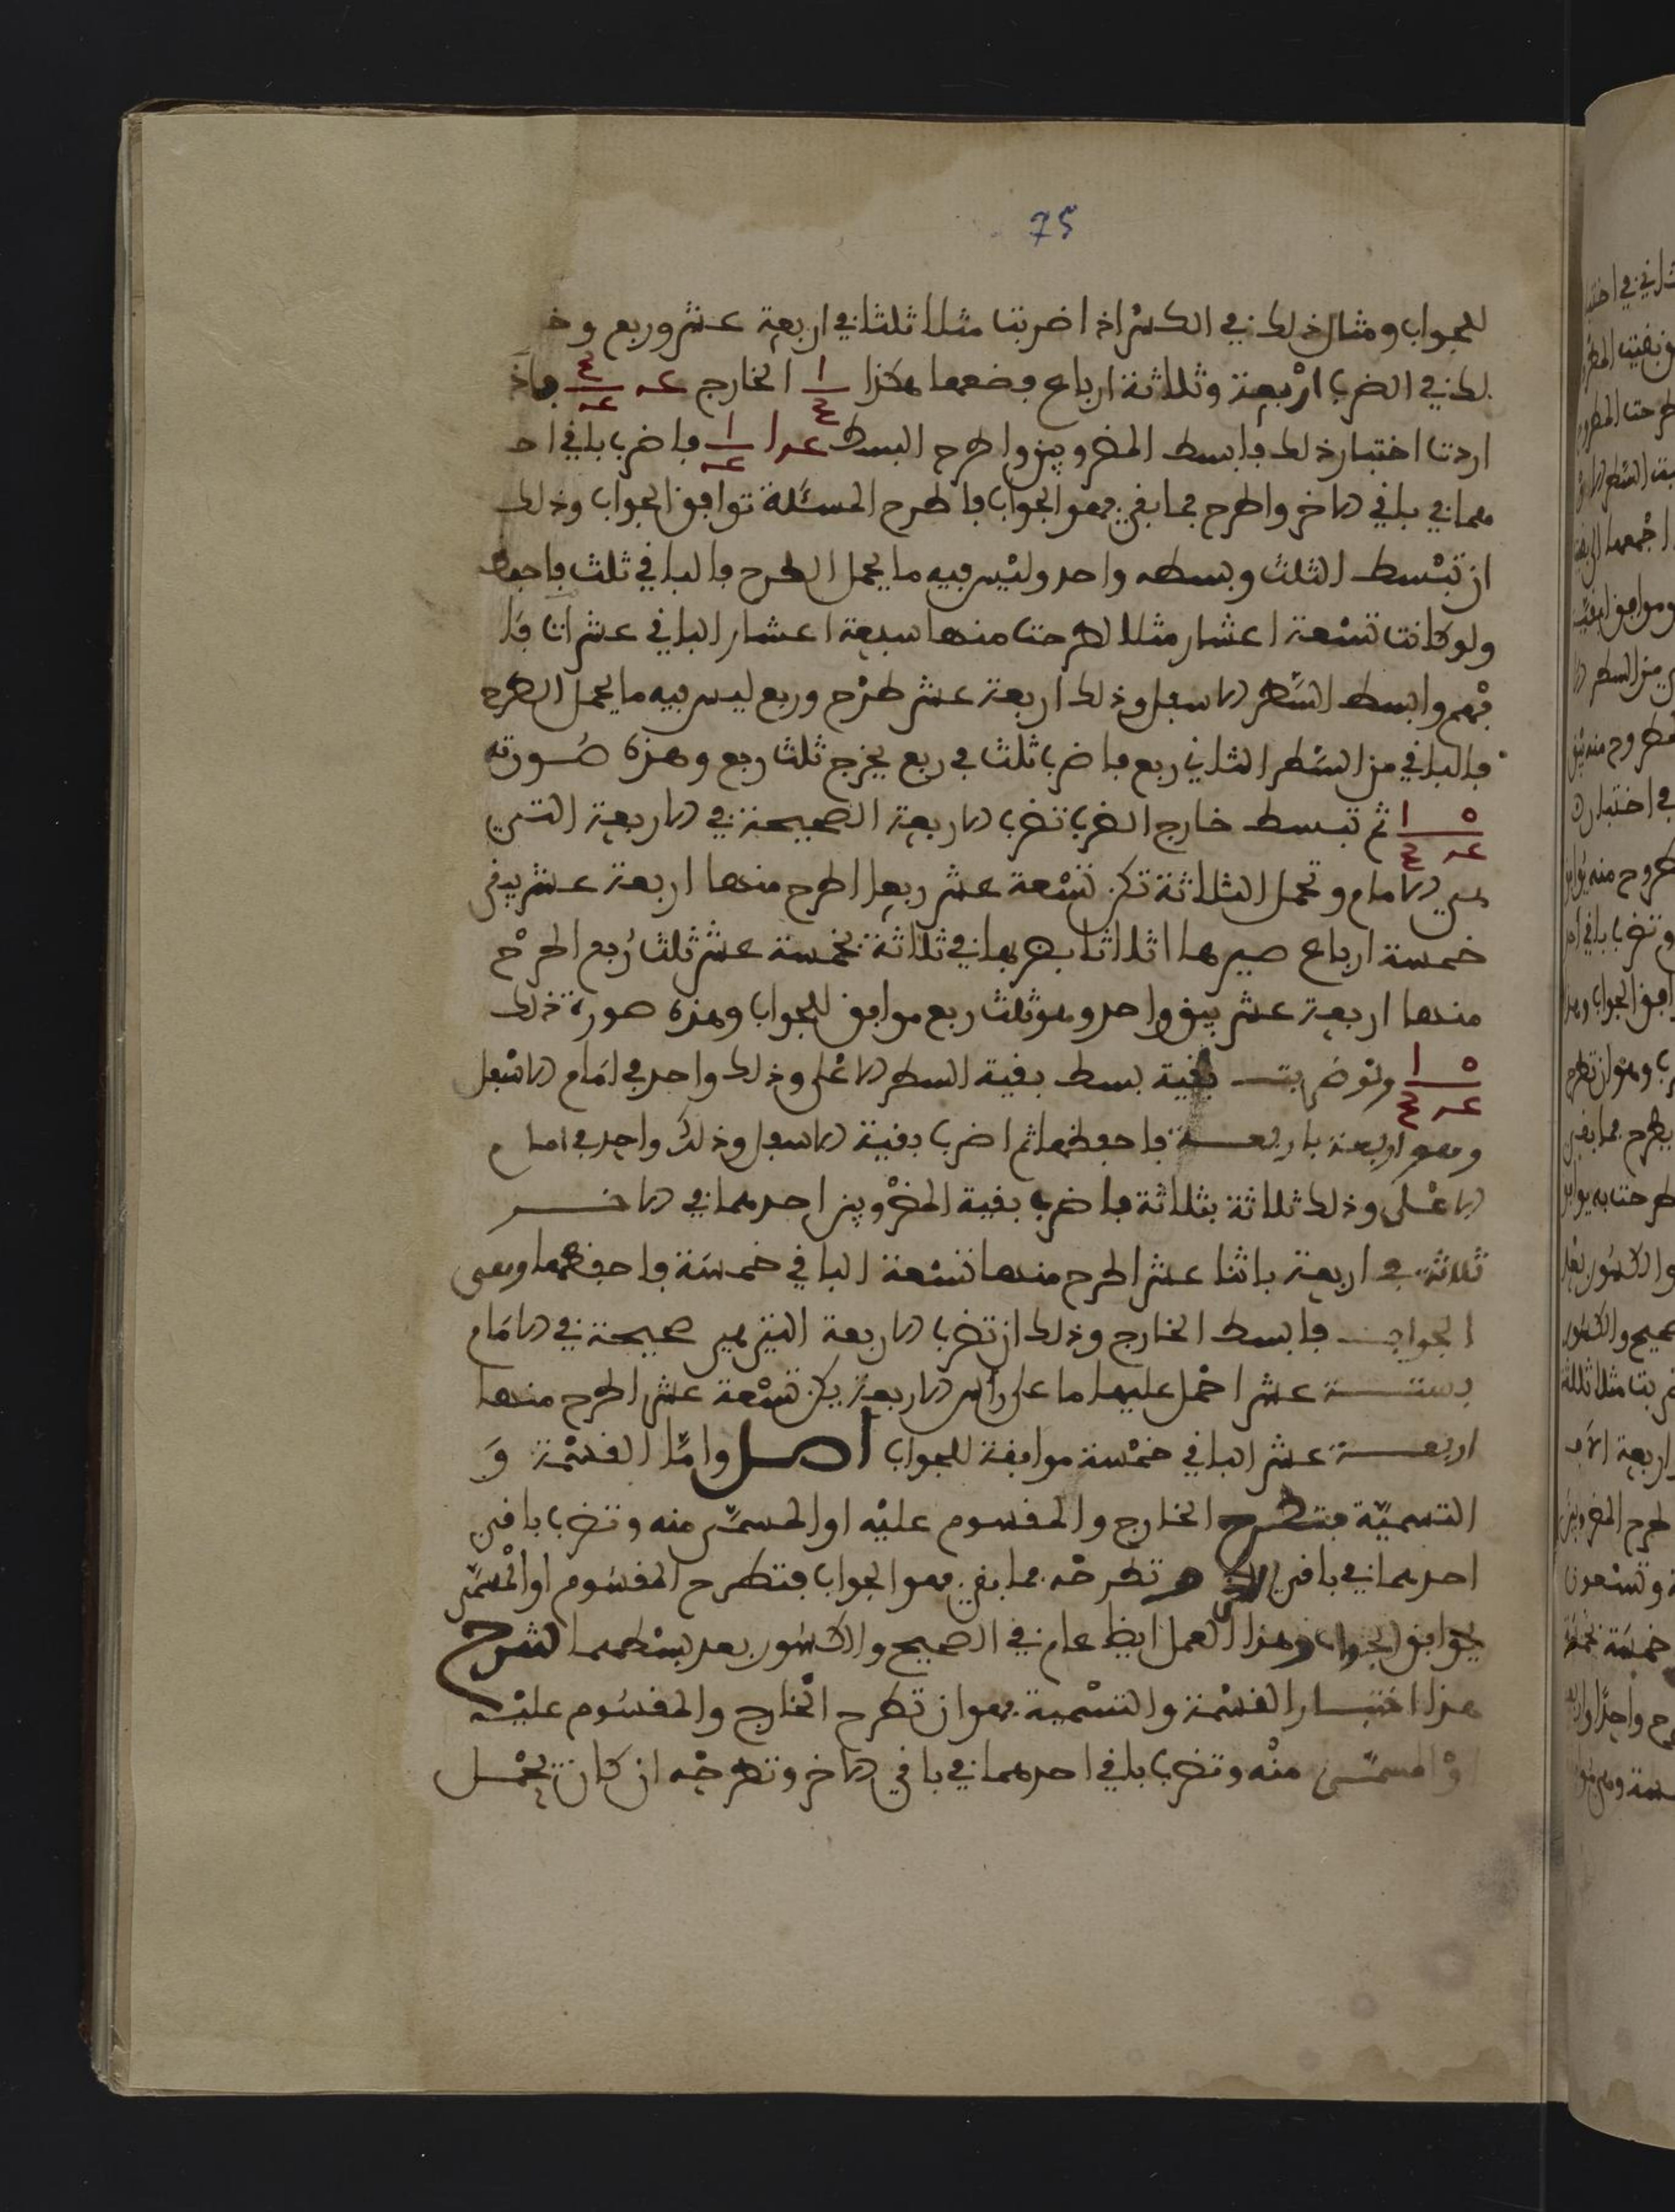 75
للجواب ومثال ذلك في الكسر اذا ضربت مثلا ثلثا في اربعة عشر وربع وخ
لك في الضرب اربعة وثلاثة ارباع فضعهما هكذا الخارج فاذ
اردت اختبار ذلك فابسط المضروبين واطرح البسط فاضرب باقي احد
هما في باقي الاخر واطرح فما بقي فهو الجواب فاطرح المسئلة توافق الجواب وذلك
ان تبسط الثلث وبسطه واحد وليس فيه ما يحمل الطرح فالباقي ثلث فاحفظه
ولو كانت تسعة اعشار مثلا لطرحت منها سبعة اعشار الباقي عشران فا
فهم وابسط السطر الاسفل وذلك اربعة عشر طرح وربع ليس فيه ما يحمل الطرح
فالباقي من السطر الثاني ربع فاضرب ثلث في ربع يخرج ثلث ربع وهذه صورته
ثم تبسط خارج الضرب تضرب الاربعة الصحيحة في الاربعة التي
هي الامام وتحمل الثلاثة تكن تسعة عشر ربعا اطرح منها اربعة عشر يبقى
خمسة ارباع صيرها اثلاثا بضربها في ثلاثة بخمسة عشر ثلث ربع اطرح
منها اربعة عشر يبق واحد وهو ثلث ربع موافق للجواب وهذه صورة ذلك
ولو ضربت بقية بسط بقية السطر الاعلى وذلك واحد في امام الاسفل
وهو اربعة باربعة فاحفظها ثم اضرب بقية الاسفل وذلك واحد في امام
الاعلى وذلك ثلاثة بثلاثة فاضرب بقية المضروبين احدهما في الاخر
ثلاثة في اربعة باثنا عشر اطرح منها تسعة الباقي خمسة فاحفظها وهي
الجواب فابسط الخارج وذلك ان تضرب الاربعة التي هي صحيحة في الامام
بستة عشر احمل عليها ما على راس الاربعة يكن تسعة عشر اطرح منها
اربعة عشر الباقي خمسة موافقة للجواب اصل واما القسمة و
التسمية فتطرح الخارج والمقسوم عليه او المسمى منه وتضرب باقي
احدهما في باقي الاخر تطرحه فما بقي فهو الجواب فتطرح المقسوم او المسمى
يوافق الجواب وهذا العمل ايظا عام في الصحيح والكسور بعد بسطهما الشرح
هذا اختبار القسمة والتسمية فهو ان تطرح الخارج والمقسوم عليه
او المسمى منه وتضرب باقي احدهما في باقي الاخر وتطرحه ان كان يحمل